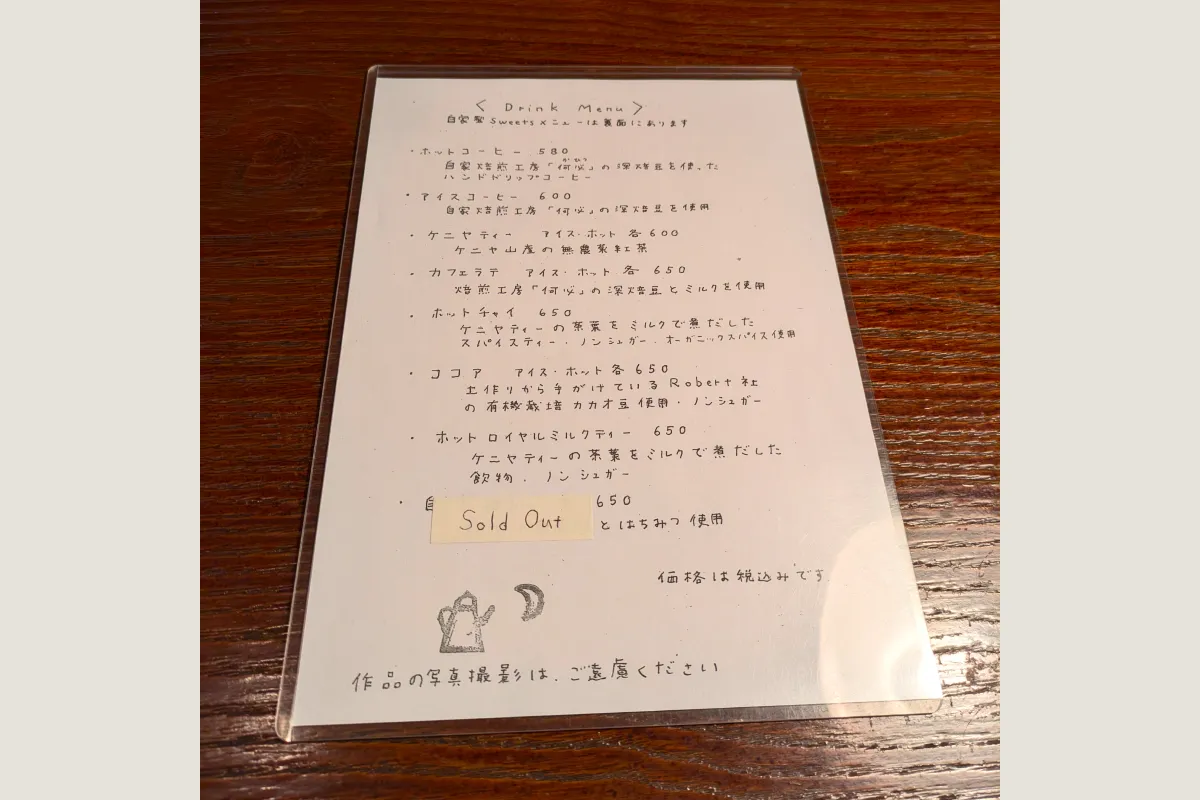 〈 Drink Menu 〉
自家製 Sweetsメニューは裏面にあります
・ホットコーヒー 580
かひつ
自家焙煎工房「何必」の深焙豆を使った
ハンドドリップコーヒー
・アイスコーヒー 600
自家焙煎工房「何必」の深焙豆を使用
・ケニヤティー アイス・ホット 各600
ケニヤ山産の無農薬紅茶
・カフェラテ アイス・ホット 各 650
焙煎工房「何必」の深焙豆とミルクを使用
・ホットチャイ 650
ケニヤティーの茶葉をミルクで煮だした
スパイスティー・ノンシュガー・オーガニックスパイス使用
・ココア アイス・ホット 各650
土作りから手がけているRobert社
の有機栽培カカオ豆使用・ノンシュガー
・ホットロイヤルミルクティー 650
ケニヤティーの茶葉をミルクで煮だした
飲物．ノンシュガー
・自 650
Sold Out とはちみつ使用
価格は税込みです
作品の写真撮影は、ご遠慮ください